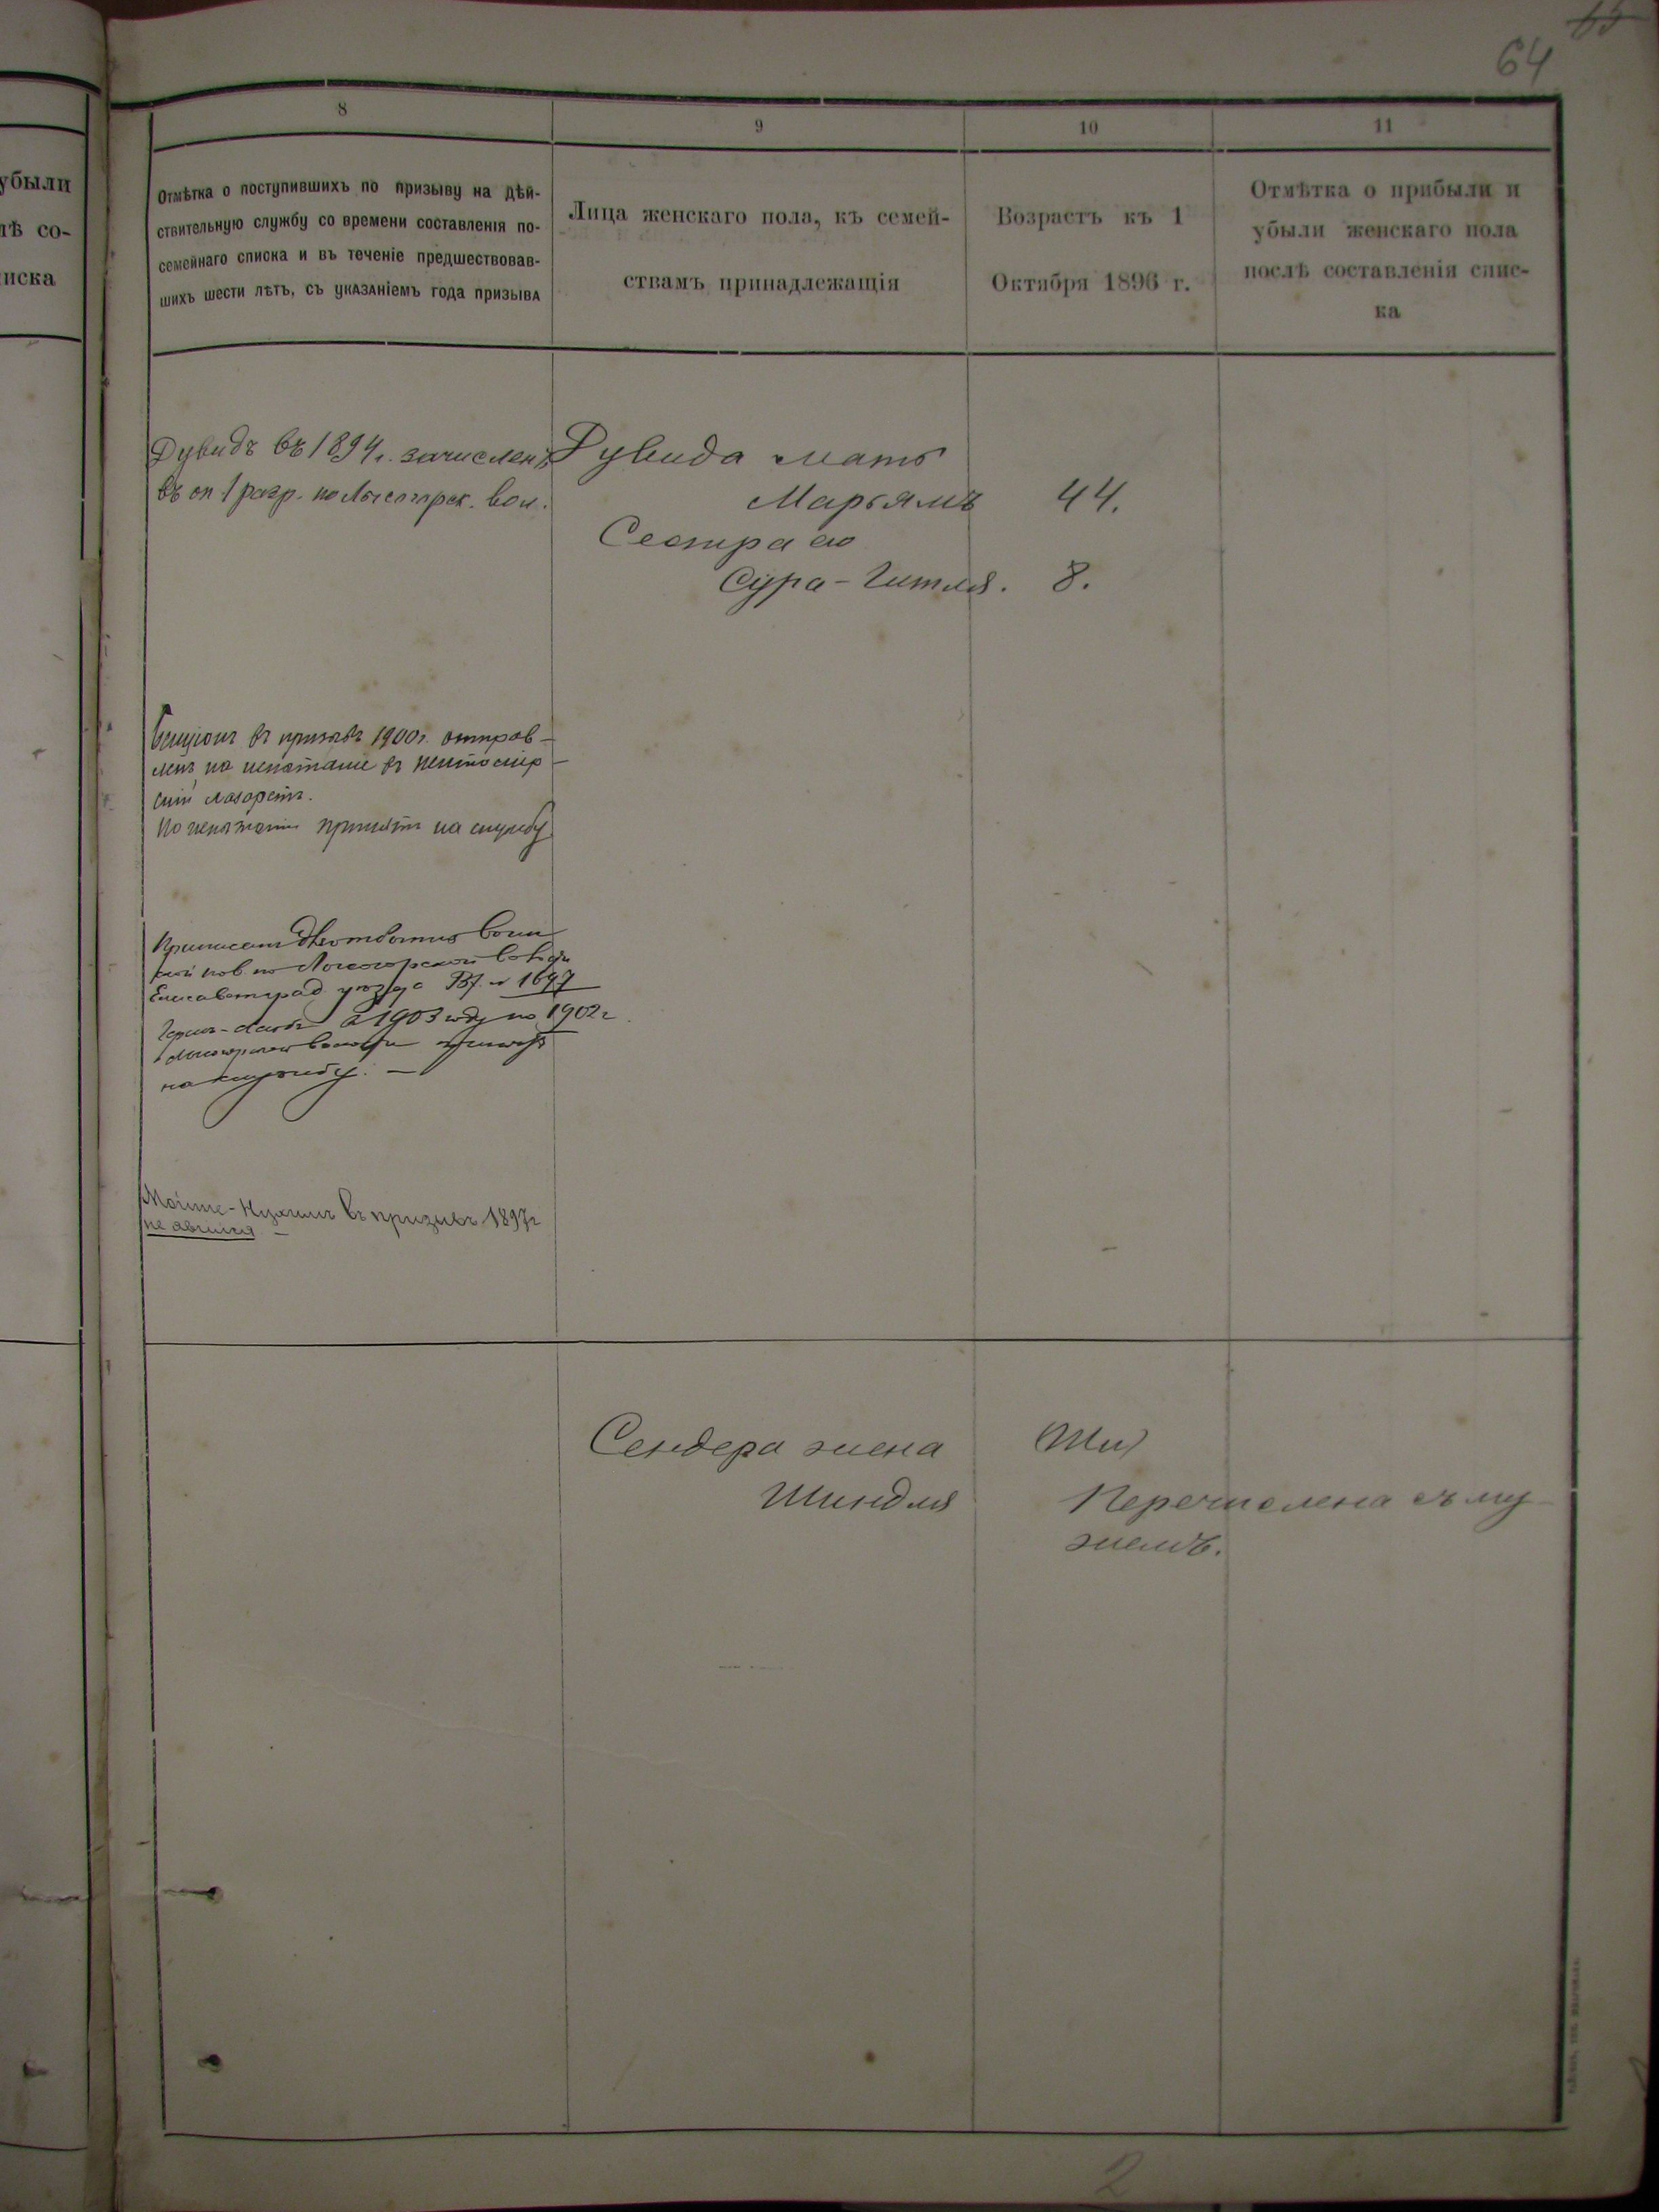 65
64
убыли
лѣ со-
иска
8
9
10
11
Отмѣтка о поступившихъ по призыву на дѣй-
ствительную службу со времени составленія по-
семейнаго списка и въ теченіе предшествовав-
шихъ шести лѣтъ, съ указаніемъ года призыва
Лица женскаго пола, къ семей-
ствамъ принадлежащія
Возрастъ къ 1
Октября 1896 г.
Отмѣтка о прибыли и
убыли женскаго пола
послѣ составленія спис-
ка
Дувидъ въ 1894 г. зачисленъ
въ оп. 1 разр. по Лысогорск. вол.
Дувида мать
Марьямъ 44.
Сестра его
Сура-Гитля. 8.
Бенціонъ въ призывъ 1900 г. отправ-
ленъ на испытаніе въ
скій лазаретъ.
По испытаніи принятъ на службу
Приписанъ къ отбытію воин-
ской пов. по Лысогорской вол.
Елисаветград. уѣзда № 1697
въ 1903 году по 1902 г.
на службу. —
Мойше- въ призывъ 1897 г
не явился
Сендера жена
Шиндля
Перечислена съ му-
жемъ.
2